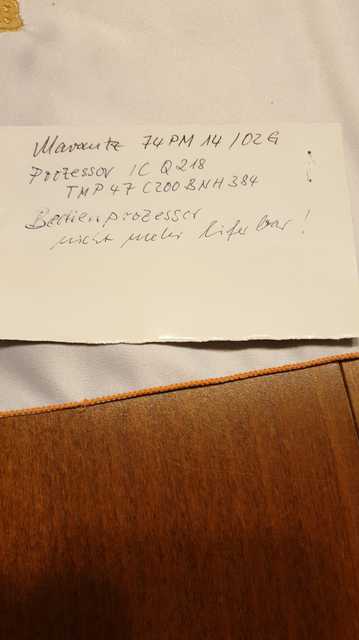 Marantz 74PM14/02G
Prozessor IC Q218
TMP47C200BNH384
Bedienprozessor
nicht mehr lieferbar!